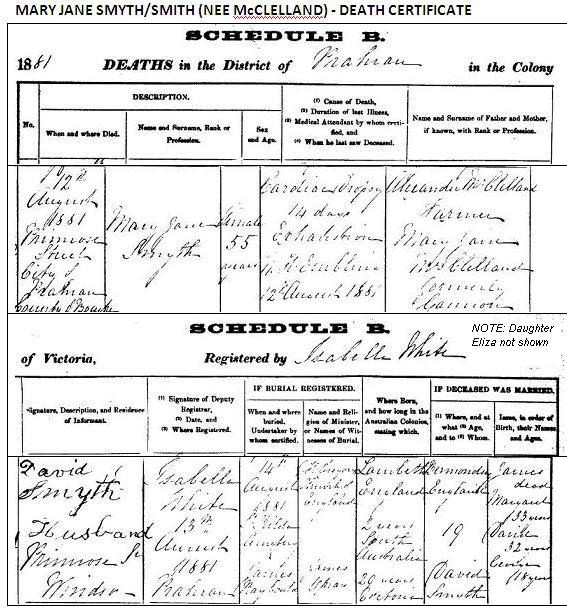 MARY JANE SMYTH/SMITH (NEE McCLELLAND) - DEATH CERTIFICATE
SCHEDULE B.
1881 DEATHS in the District of Prahran in the Colony
DESCRIPTION.
No.
When and where Died.
Name and Surname, Rank or
Profession.
Sex
and Age.
(1) Cause of Death,
(2) Duration of last Illness,
(3) Medical Attendant by whom certi-
fied, and
(4) When he last saw Deceased.
Name and Surname of Father and Mother,
if known, with Rank or Profession.
12th
August
1881
Primrose
Street
City of
Prahran
County of Bourke
Mary Jane
Smyth
Female
55
years
Cardiac Dropsy
14 days
Exhaustion
12th August 1881
Alexander McClelland
Farmer
Mary Jane
McClelland
formerly
Cannon
SCHEDULE B.
NOTE: Daughter
Eliza not shown
of Victoria, Registered by Isabella White
Signature, Description, and Residence
of Informant.
(1) Signature of Deputy
Registrar,
(2) Date, and
(3) Where Registered.
IF BURIAL REGISTERED.
When and where
buried.
Undertaker by
whom certified.
Name and Reli-
gion of Minister,
or Names of Wit-
nesses of Burial.
Where Born,
and how long in the
Australian Colonies,
stating which.
IF DECEASED WAS MARRIED.
(1) Where, and at
what (2) Age,
and to (3) Whom.
Issue, in order of
Birth, their Names
and Ages.
David
Smyth
Husband
Primrose St
Windsor
Isabella
White
13th
August
1881
Prahran
14th
August
1881
St Kilda
Cemetery
James
England
James
Lambeth
England
2 years
South
Australia
29 years
Victoria
Bermondsey
England
19
David
Smyth
James
dead
Margaret
33 years
32 years
18 years